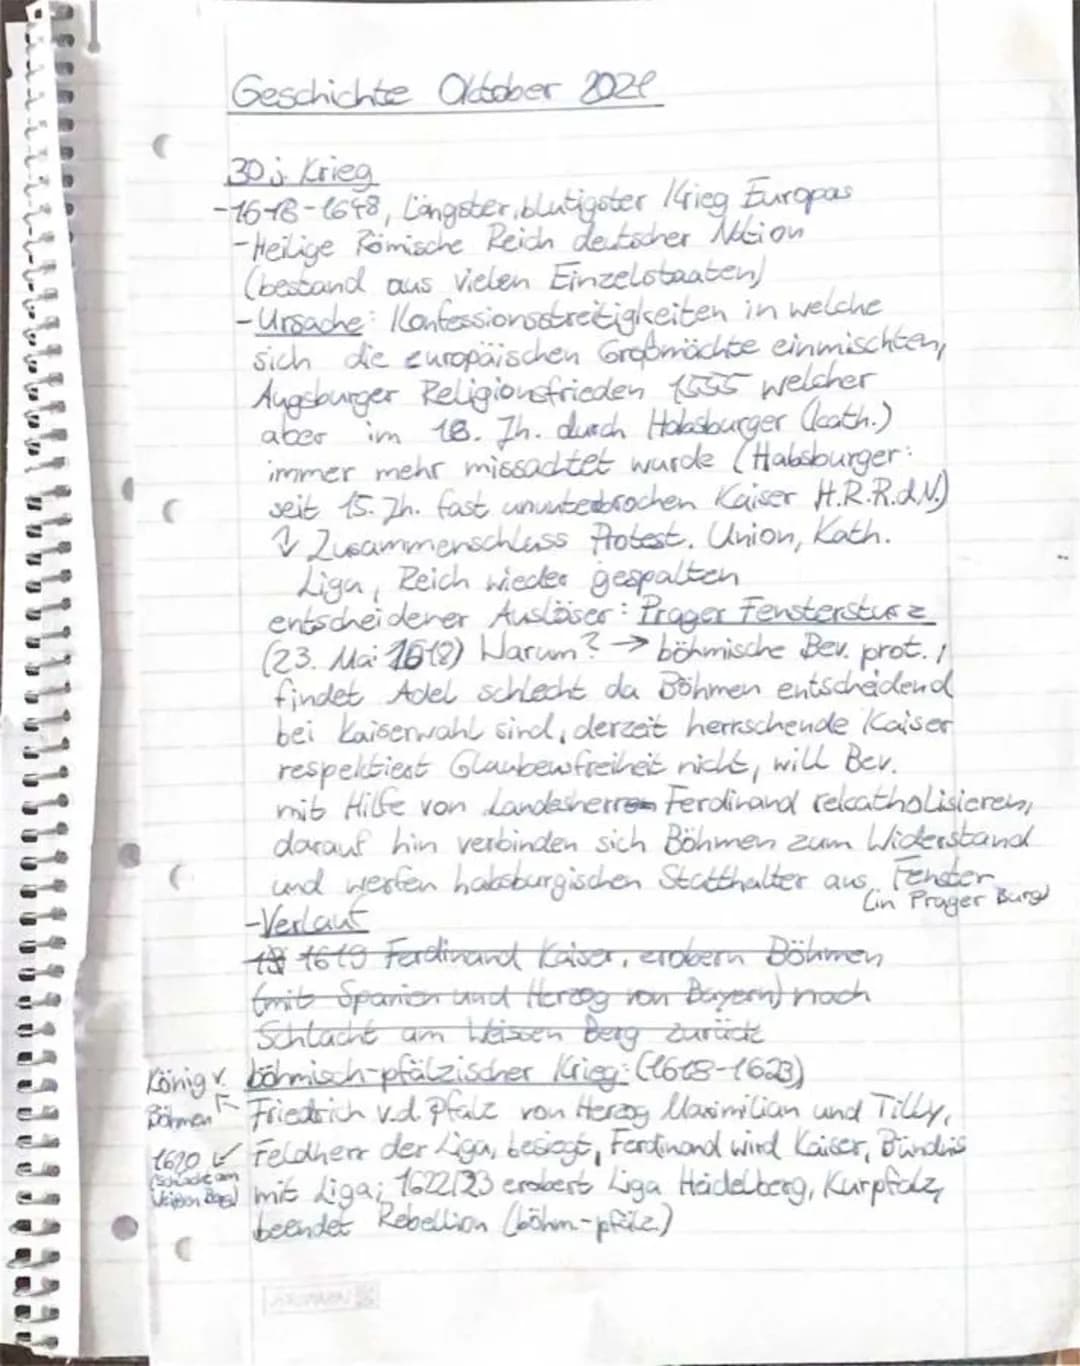 Geschichte Oktober
30 j. Krieg
-1618-1648, Längster, blutigster Krieg Europas
-Heilige Römische Reich deutscher Nation
(bestand aus vielen Einzelstaaten)
-Ursache: Konfessionsstreitigkeiten in welche
sich die europäischen Großmächte einmischten,
Augsburger Religionsfrieden 1555 welcher
aber im Jh. durch Habsburger (kath.)
immer mehr missachtet wurde (Habsburger:
seit 15. Jh. fast ununterbrochen Kaiser H.R.R.d.N.)
↳ Zusammenschluss Protest. Union, Kath.
Liga, Reich wieder gespalten
entscheidener Auslöser: Prager Fenstersturz
(23. Mai 1618) Warum? → böhmische Bev. prot.,
findet Adel schlecht da Böhmen entscheidend
bei Kaiserwahl sind, derzeit herrschende Kaiser
respektiert Glaubensfreiheit nicht, will Bev.
mit Hilfe von Landesherren Ferdinand rekatholisieren,
darauf hin verbinden sich Böhmen zum Widerstand
und werfen habsburgischen Statthalter aus Fenster
(in Prager Burg)
-Verlauf
18 1619 Ferdinand Kaiser, erobern Böhmen
(mit Spanien und Herzog von Bayern) nach
Schlacht am Weissen Berg zurück
böhmisch-pfälzischer Krieg: (1618-1623)
König v. Böhmen
Friedrich v.d. Pfalz von Herzog Maximilian und Tilly,
1620
(Schlacht am Weißen Berg)
Feldherr der Liga, besiegt, Ferdinand wird Kaiser, Bündnis
mit Liga; 1622/23 erobert Liga Heidelberg, Kurpfalz,
beendet Rebellion (böhm.-pfälz.)